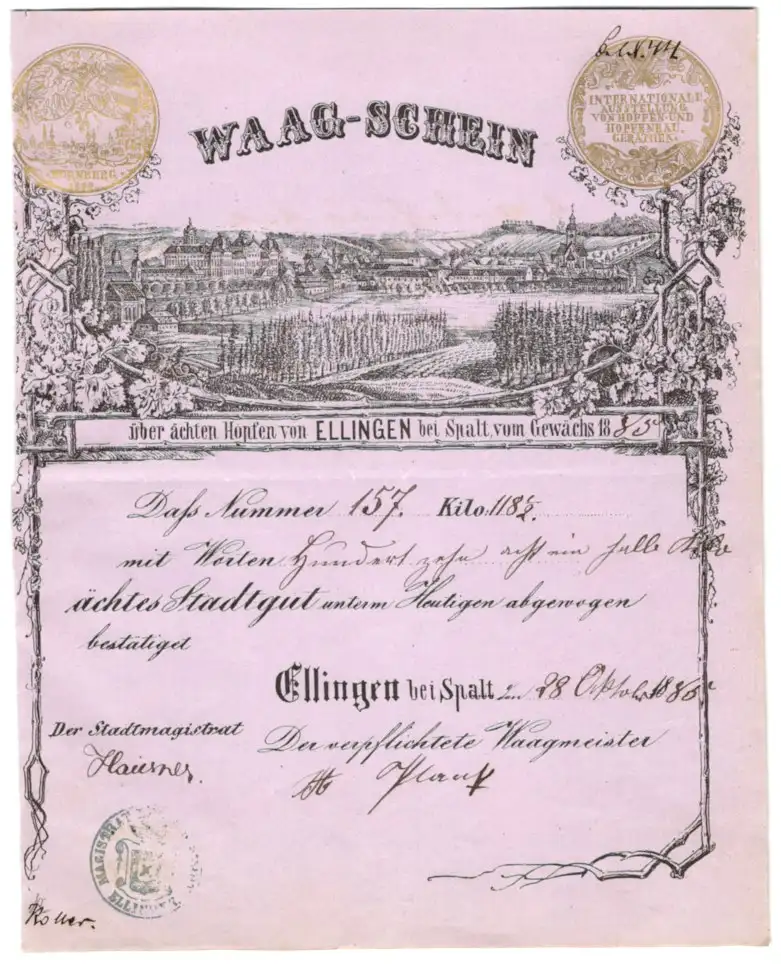 WAAG-SCHEIN
NÜRNBERG
INTERNATIONALE
AUSSTELLUNG
VON HOPFEN UND
HOPFENBAU-
GERÄTHEN.
über ächten Hopfen von ELLINGEN bei Spalt, vom Gewächs 1885
Daß Nummer 157. Kilo: 118 1/2.
mit Worten Hundert zehn acht ein halb Kilo
ächtes Stadtgut unterm Heutigen abgewogen
bestätiget
Ellingen bei Spalt den 28 Oktober 1885
Der Stadtmagistrat
Der verpflichtete Waagmeister
Plank
MAGISTRAT
ELLINGEN
Koller.